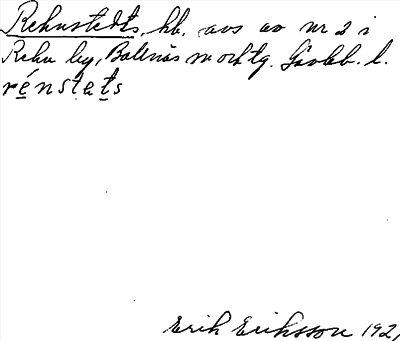 Rehnstedts, hb. avs av nr 2 i
Rehn by, Bollnäs m och tg. Gävleb. l.
rénstets
Erik Eriksson 192